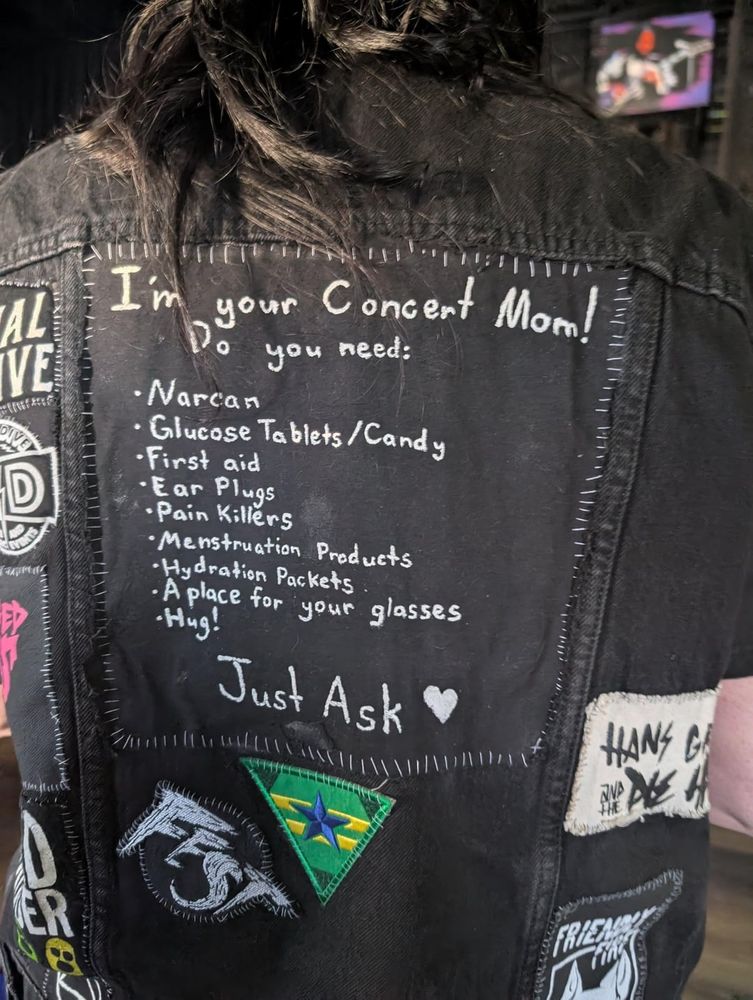 I'm your Concert Mom!
Do you need:
· Narcan
· Glucose Tablets/Candy
· First aid
· Ear Plugs
· Pain Killers
· Menstruation Products
· Hydration Packets
· A place for your glasses
· Hug!
Just Ask ♥
FEST
HANS
AND THE DIE
FRIENDLY
FIRE